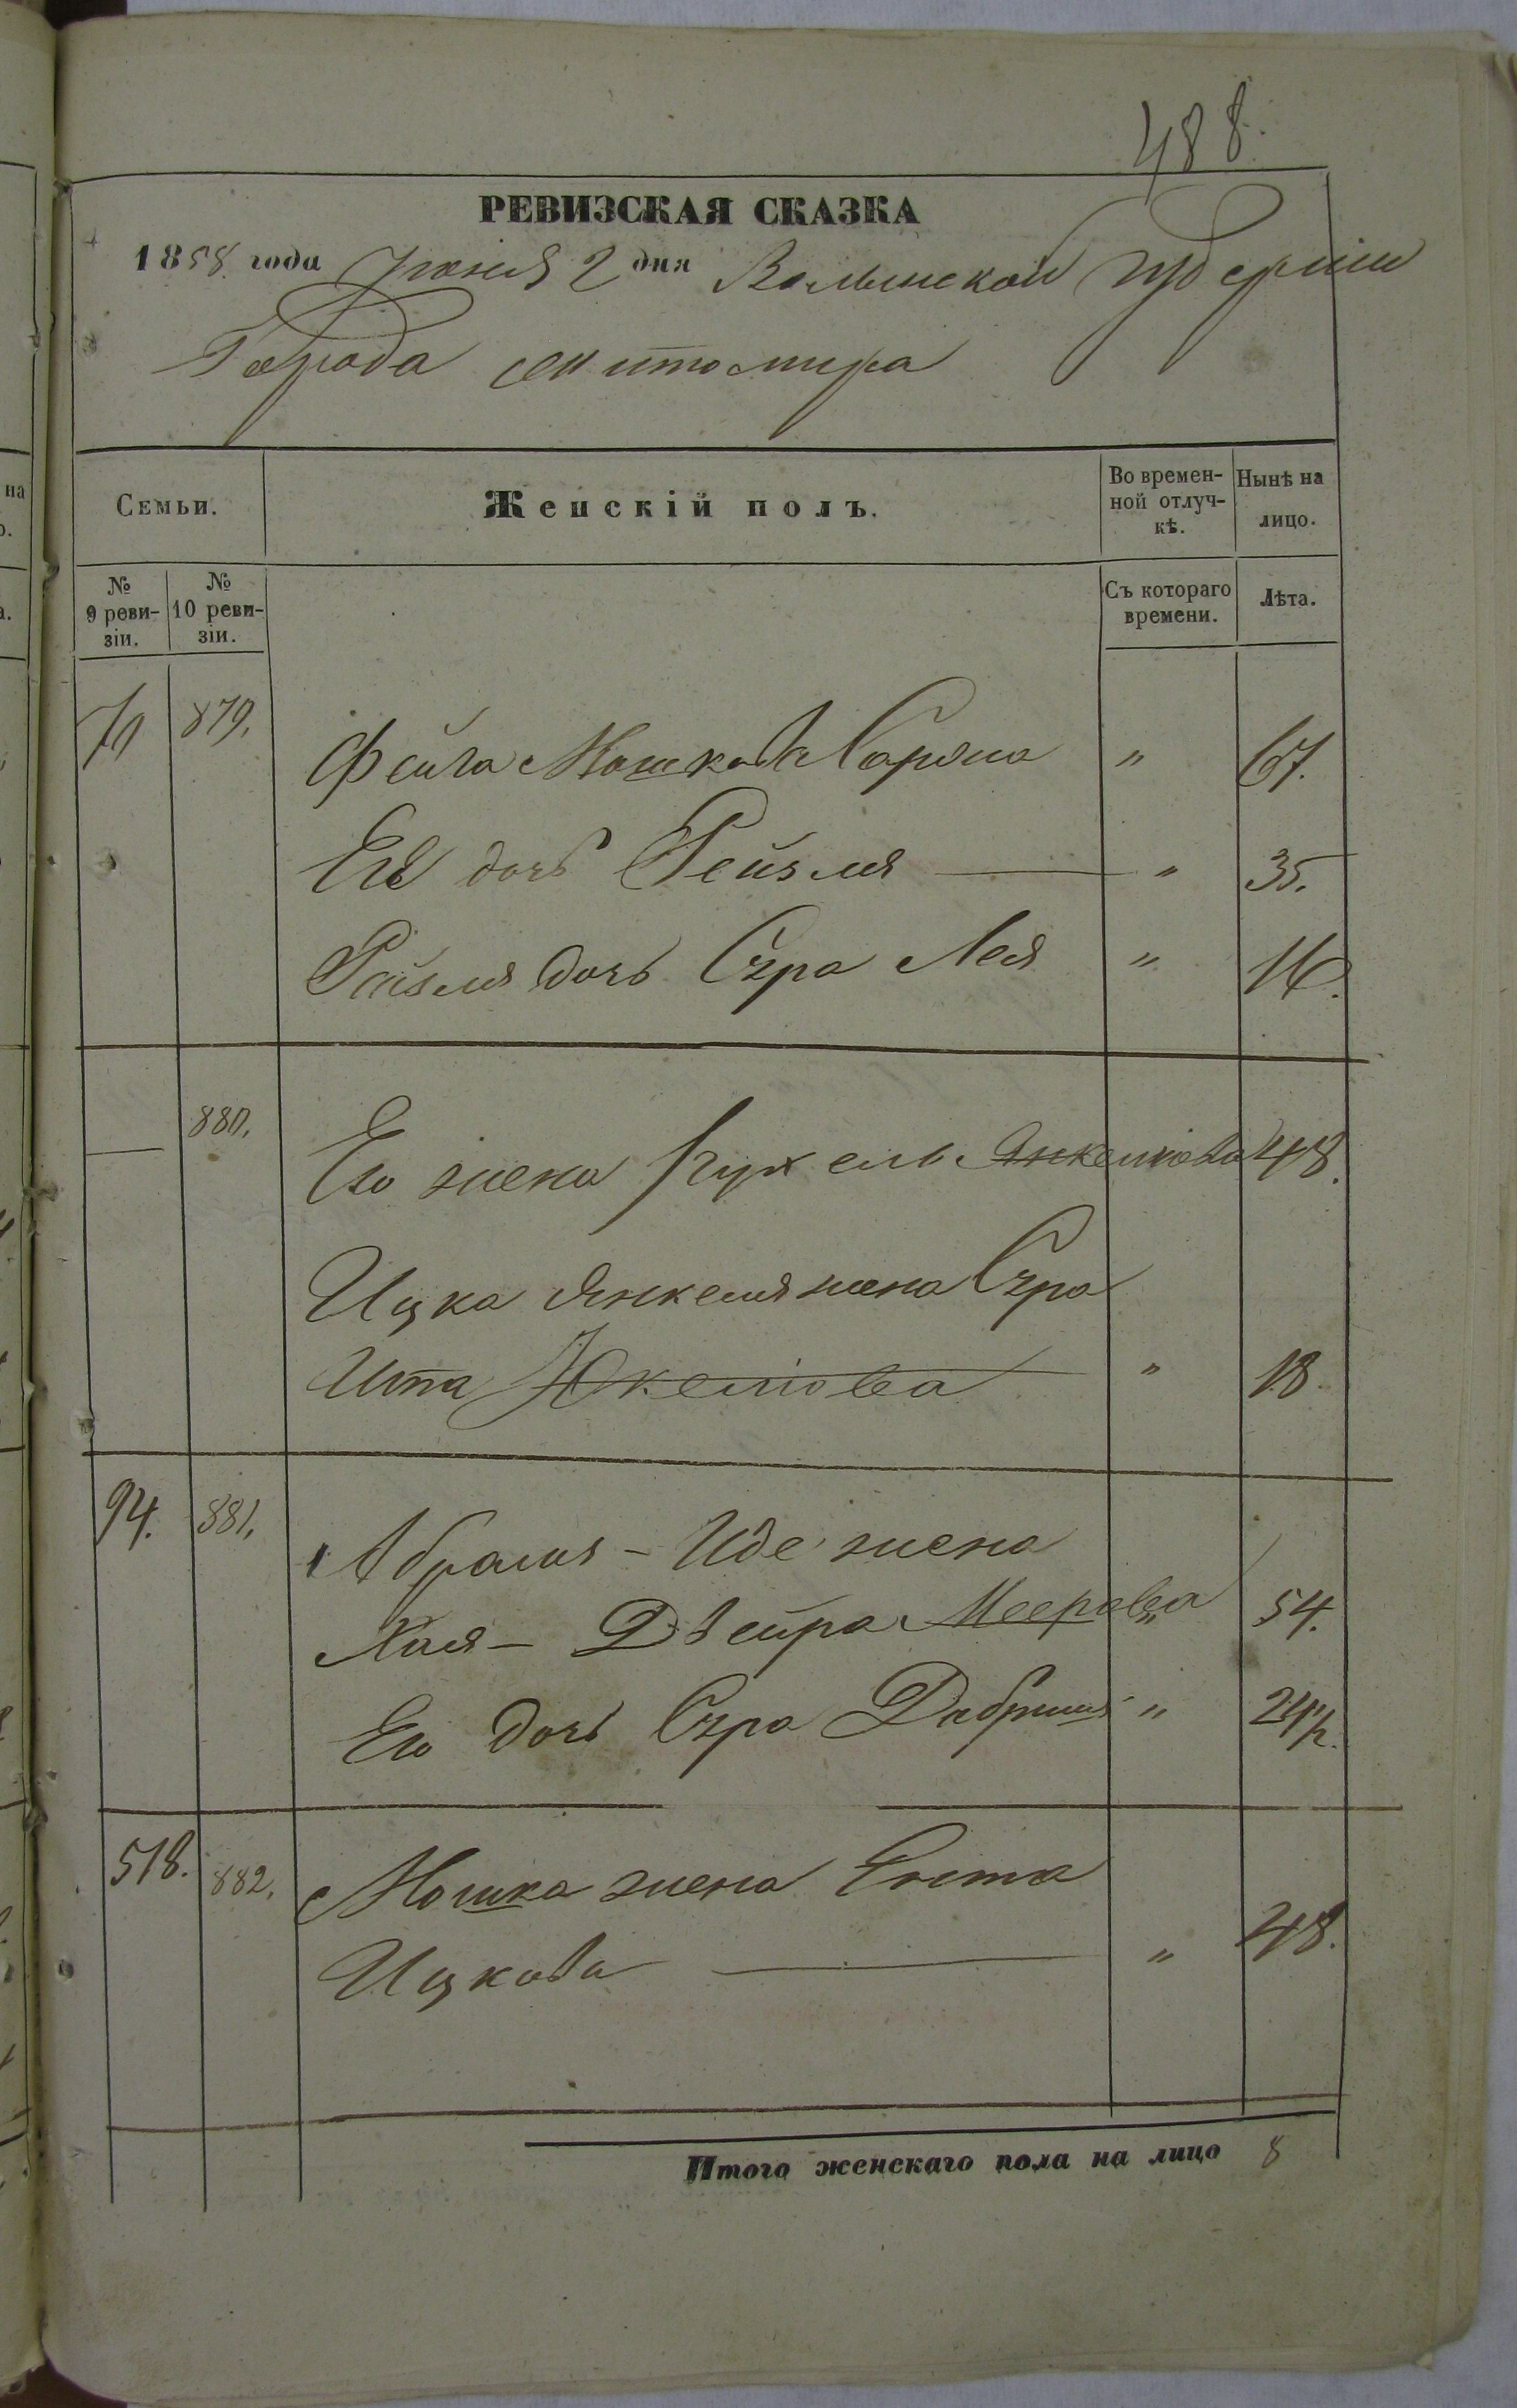 488.
РЕВИЗСКАЯ СКАЗКА
1858 года Июня 2 дня Волынской губернии
Города Житомира
Семьи.
Женскій полъ.
Во времен-
ной отлуч-
кѣ.
Нынѣ на
лицо.
№
9 реви-
зіи.
№
10 реви-
зіи.
Съ котораго
времени.
Лѣта.
879. Фейга Мошкова " 67.
Её дочь Рейзля " 35.
Рейзля дочь Сура Лея " 16.
880. Его жена Рухель Янкелиова 48.
Ицка Янкеля жена Сура
Ита " 18.
94. 881. Абрамя - Иде жена
Хая - Двейра Меерова " 54.
Его дочь Сура Добриша " 24½.
518. 882. Мошка жена Ента
Ицкова " 48.
Итого женскаго пола на лицо 8